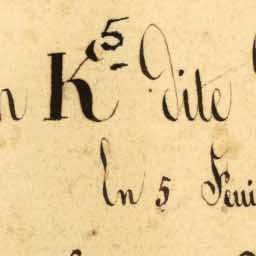 n K⁵ dite
En 5 Feui